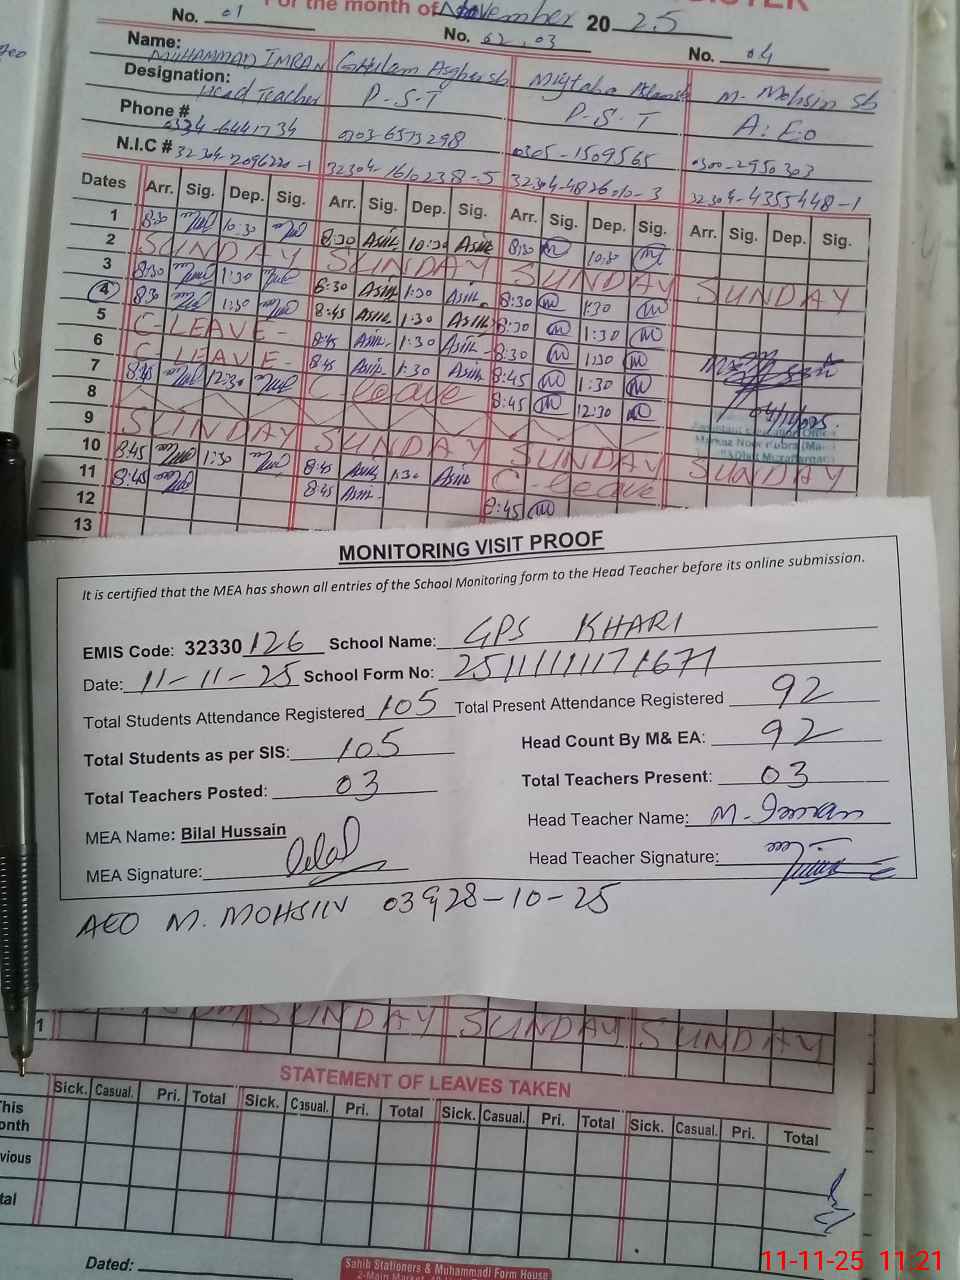 For the month of November 2025
No. 01 No. 02, 03 No. 04
Name: MUHAMMAD IMRAN Ghulam Asghar sb Mujtaba M. Mohsin sb
Designation: Head Teacher P.S.T P.S.T A.E.o
Phone # 0334-6441734 0303-6573298 0305-1509565 0300-2950303
N.I.C # 32304-2096220-1 32304-1616238-5 32304-4355448-1
Dates Arr. Sig. Dep. Sig. Arr. Sig. Dep. Sig. Arr. Sig. Dep. Sig. Arr. Sig. Dep. Sig.
1 8:30 10:30 8:30 Asih 10:30 Asih 8:30 m 10:30 m
2 SUNDAY SUNDAY SUNDAY SUNDAY
3 8:30 1:30 8:30 Asih 1:30 Asih 8:30 m 1:30 m
4 8:30 1:30 8:45 Asih 1:30 Asih 8:30 m 1:30 m
5 C-LEAVE- 8:45 Asih 1:30 Asih 8:30 m 1:30 m
6 C-LEAVE- 8:45 Asih 1:30 Asih 8:45 m 1:30 m
7 8:45 12:30 C-leave 8:45 m 12:30 m
04/11/025
8
9 SUNDAY SUNDAY SUNDAY SUNDAY
10 8:45 1:30 8:45 Asih 1:30 Asih C-leave
11 8:45 8:45 Asih 8:45 m
12
13
MONITORING VISIT PROOF
It is certified that the MEA has shown all entries of the School Monitoring form to the Head Teacher before its online submission.
EMIS Code: 32330126 School Name: GPS KHARI
Date: 11-11-25 School Form No:
Total Students Attendance Registered 105 Total Present Attendance Registered 92
Total Students as per SIS: 105 Head Count By M& EA: 92
Total Teachers Posted: 03 Total Teachers Present: 03
MEA Name: Bilal Hussain Head Teacher Name: M. Imran
MEA Signature: Bilal Head Teacher Signature:
AEO M. MOHSIN 03, 28-10-25
SUNDAY SUNDAY SUNDAY
STATEMENT OF LEAVES TAKEN
Sick. Casual. Pri. Total Sick. Casual. Pri. Total Sick. Casual. Pri. Total Sick. Casual. Pri. Total
This
onth
vious
tal
Dated:
Sahib Stationers & Muhammadi Form House
11-11-25 11:21